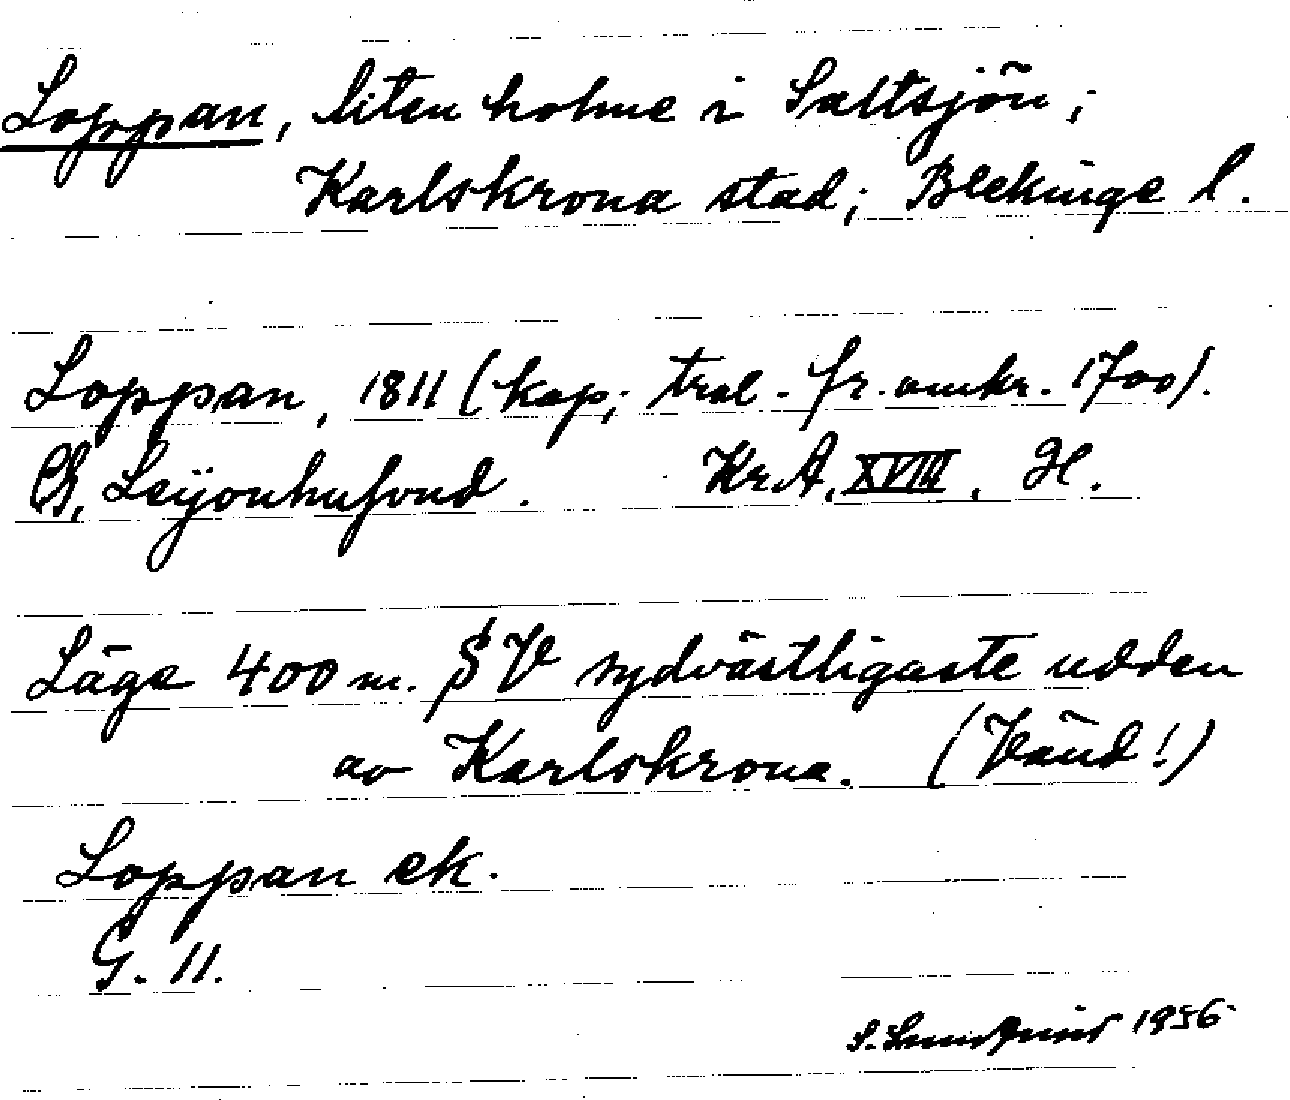 Loppan, liten holme i Saltsjön;
Karlskrona stad; Blekinge l.
Loppan, 1811 (kop; tral. fr. omkr. 1700).
Leijonhufvud. Kr.A. XVIII, H.
Läge 400 m. SV sydvästligaste udden
av Karlskrona. (Vänd!)
Loppan ek.
G. 11.
S. Lundquist 1956